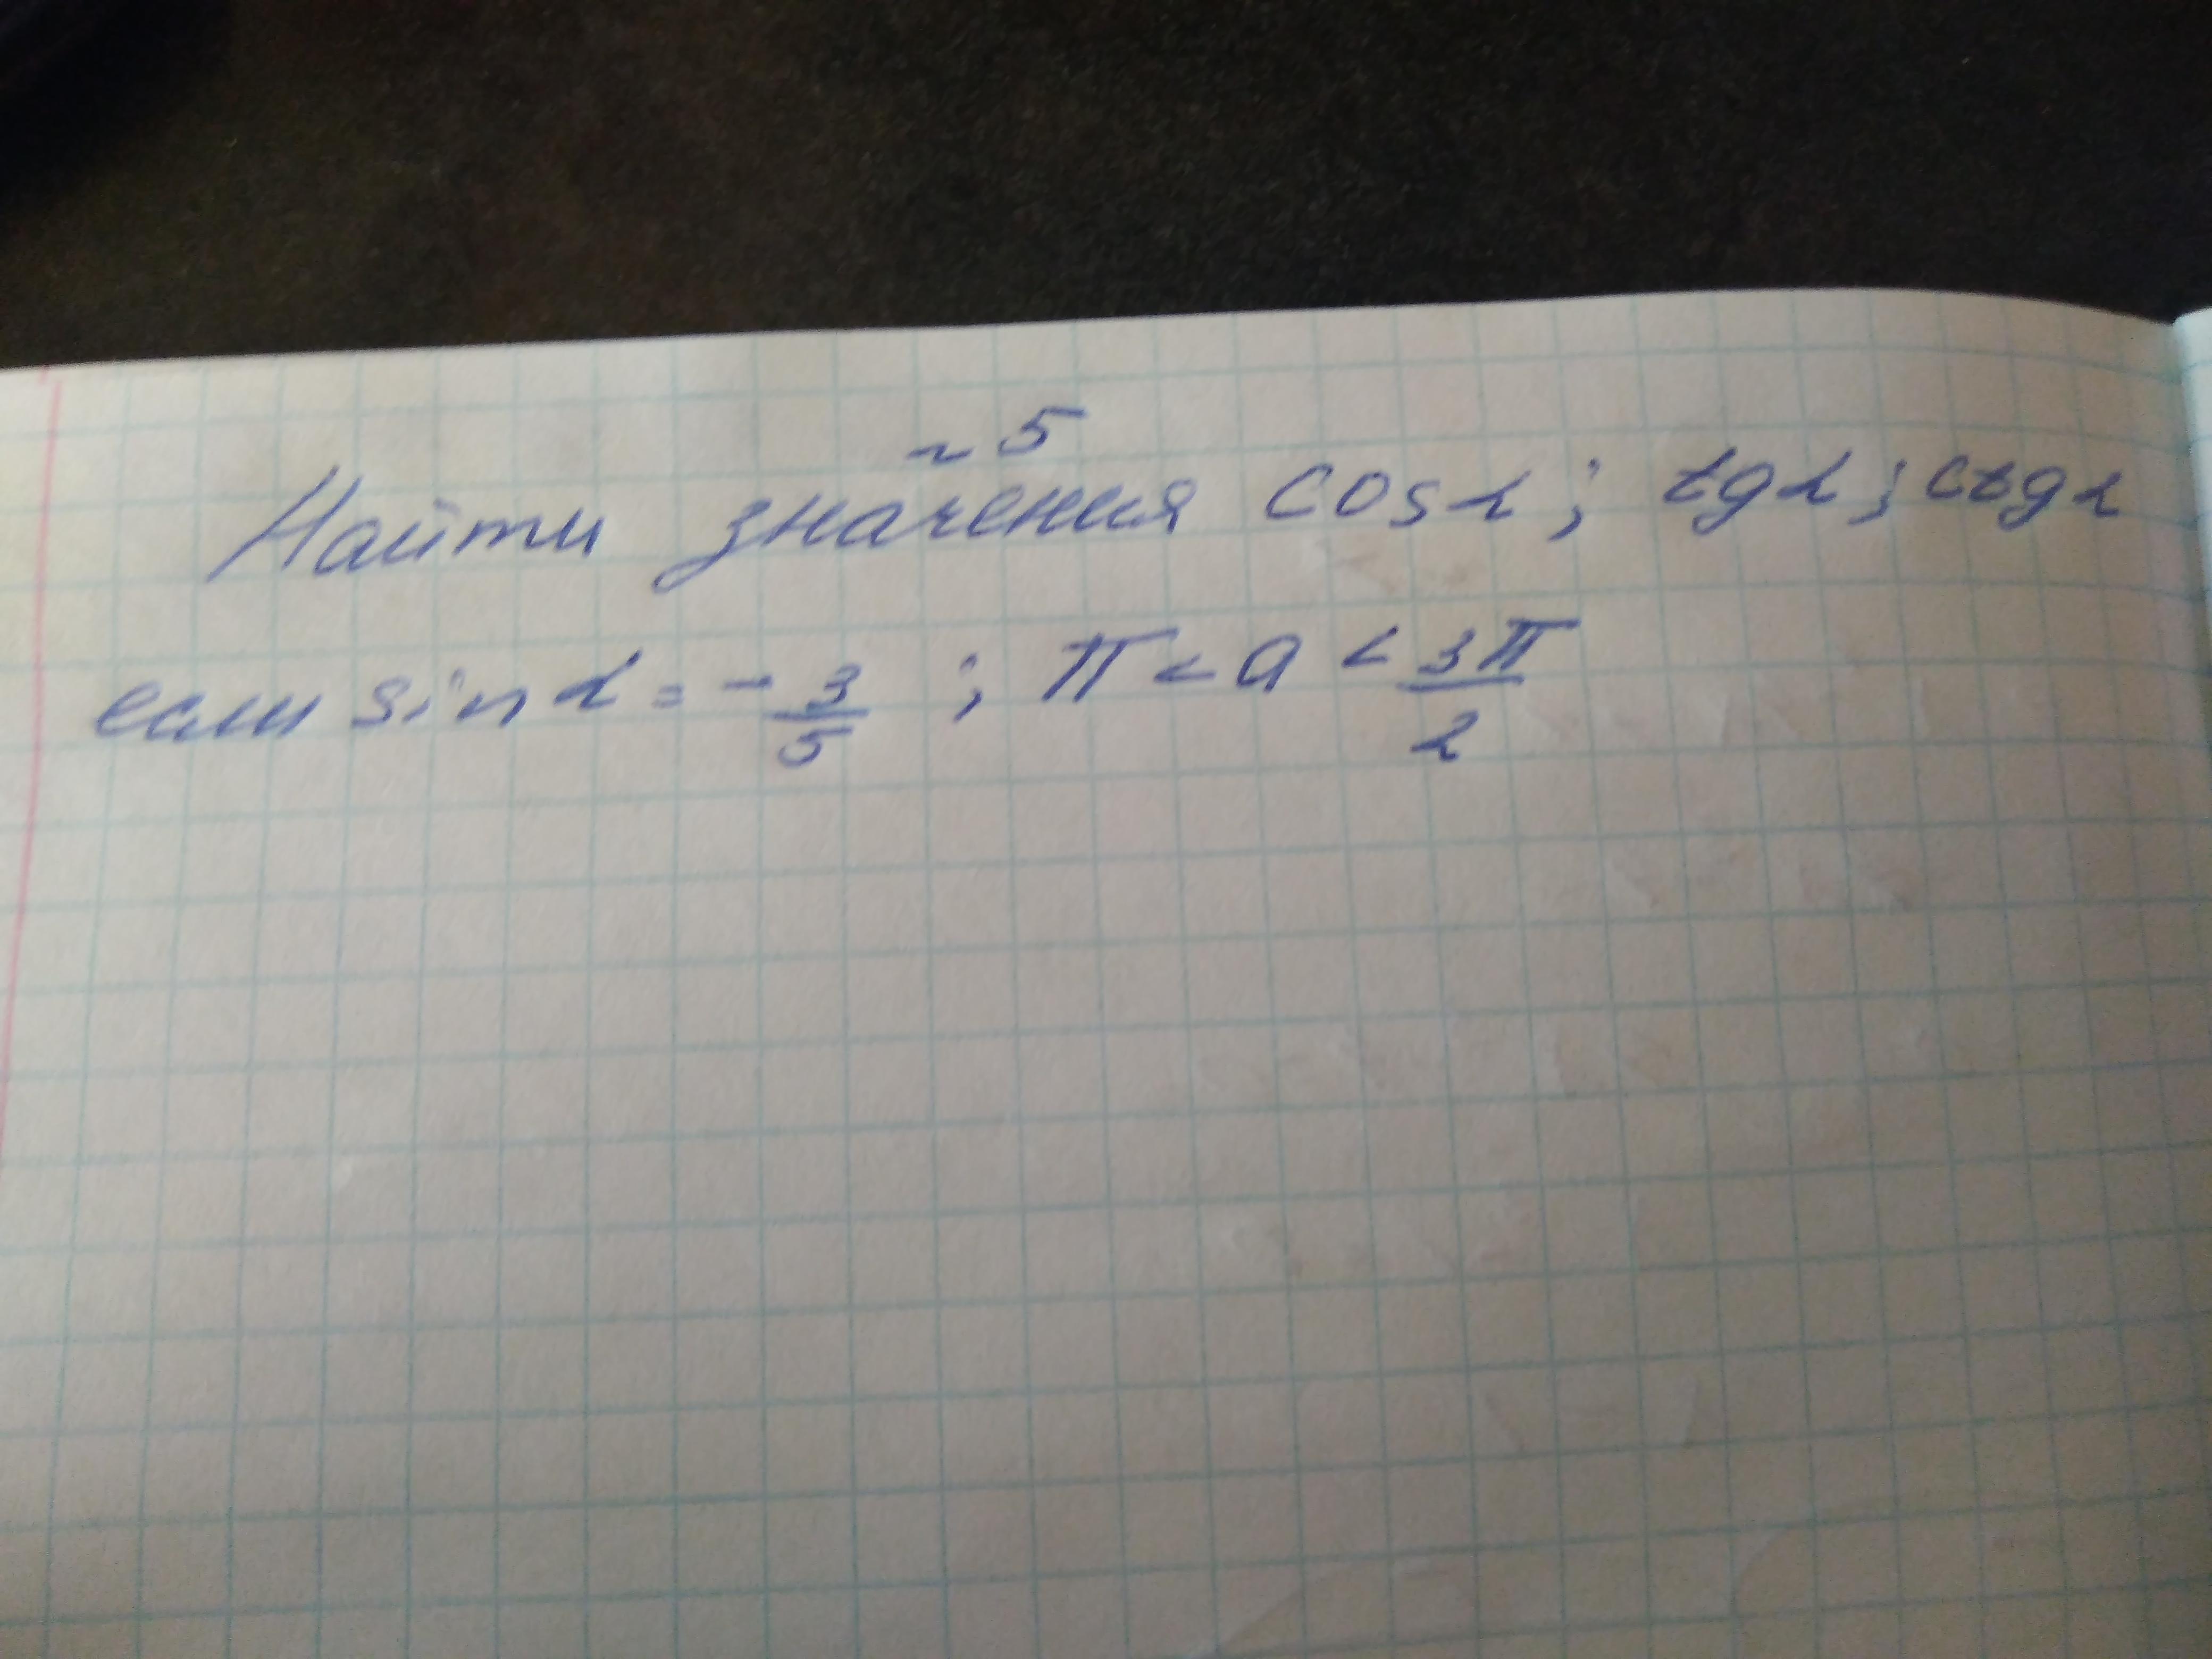 ~ 5
Найти значения cos α; tg α; ctg α
если sin α = - 3/5 ; π < a < 3π/2